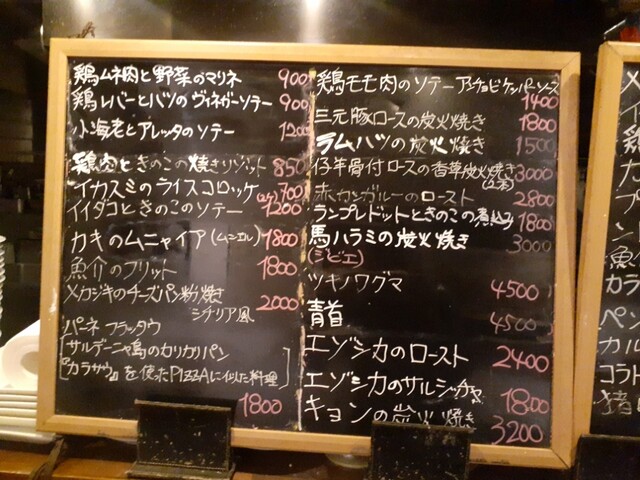 鶏ムネ肉と野菜のマリネ 900
鶏レバーとハツのヴィネガーソテー 900
小海老とアレッタのソテー 1200
鶏肉ときのこの焼きリゾット 850
イカスミのライスコロッケ(2ヶ) 700
イイダコときのこのソテー 1200
カキのムニャイア(ムニエル) 1800
魚介のフリット 1800
メカジキのチーズパン粉焼き
シチリア風 2000
パーネ フラッタウ
サルデーニャ島のカリカリパン
『カラサウ』を使ったPIZZAに似た料理
1800
鶏モモ肉のソテー アンチョビケッパーソース
1400
三元豚ロースの炭火焼き 1800
ラムハツの炭火焼き 1500
仔羊骨付ロースの香草炭火焼き
(2本) 3000
赤カンガルーのロースト 2800
ランプレドットときのこの煮込み 1800
馬ハラミの炭火焼き 3000
(ジビエ)
ツキノワグマ 4500
青首 4500
エゾシカのロースト 2400
エゾシカのサルシッチャ 1800
キョンの炭火焼き 3200
メ
イ
カラ
ペン
カル
コラト
猪